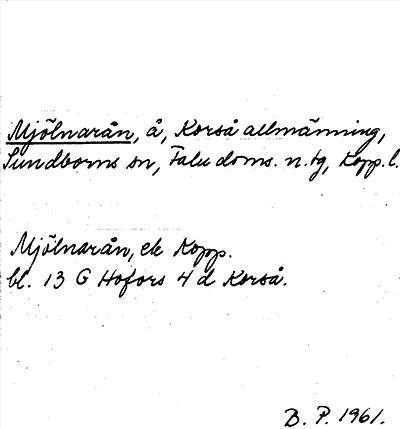 Mjölnarån, å, Korså allmänning,
Sundborns sn, Falu doms. n. tg, Kopp. l.
Mjölnarån, ek Kopp.
bl. 13 G Hofors 4 d Korså.
B. P. 1961.